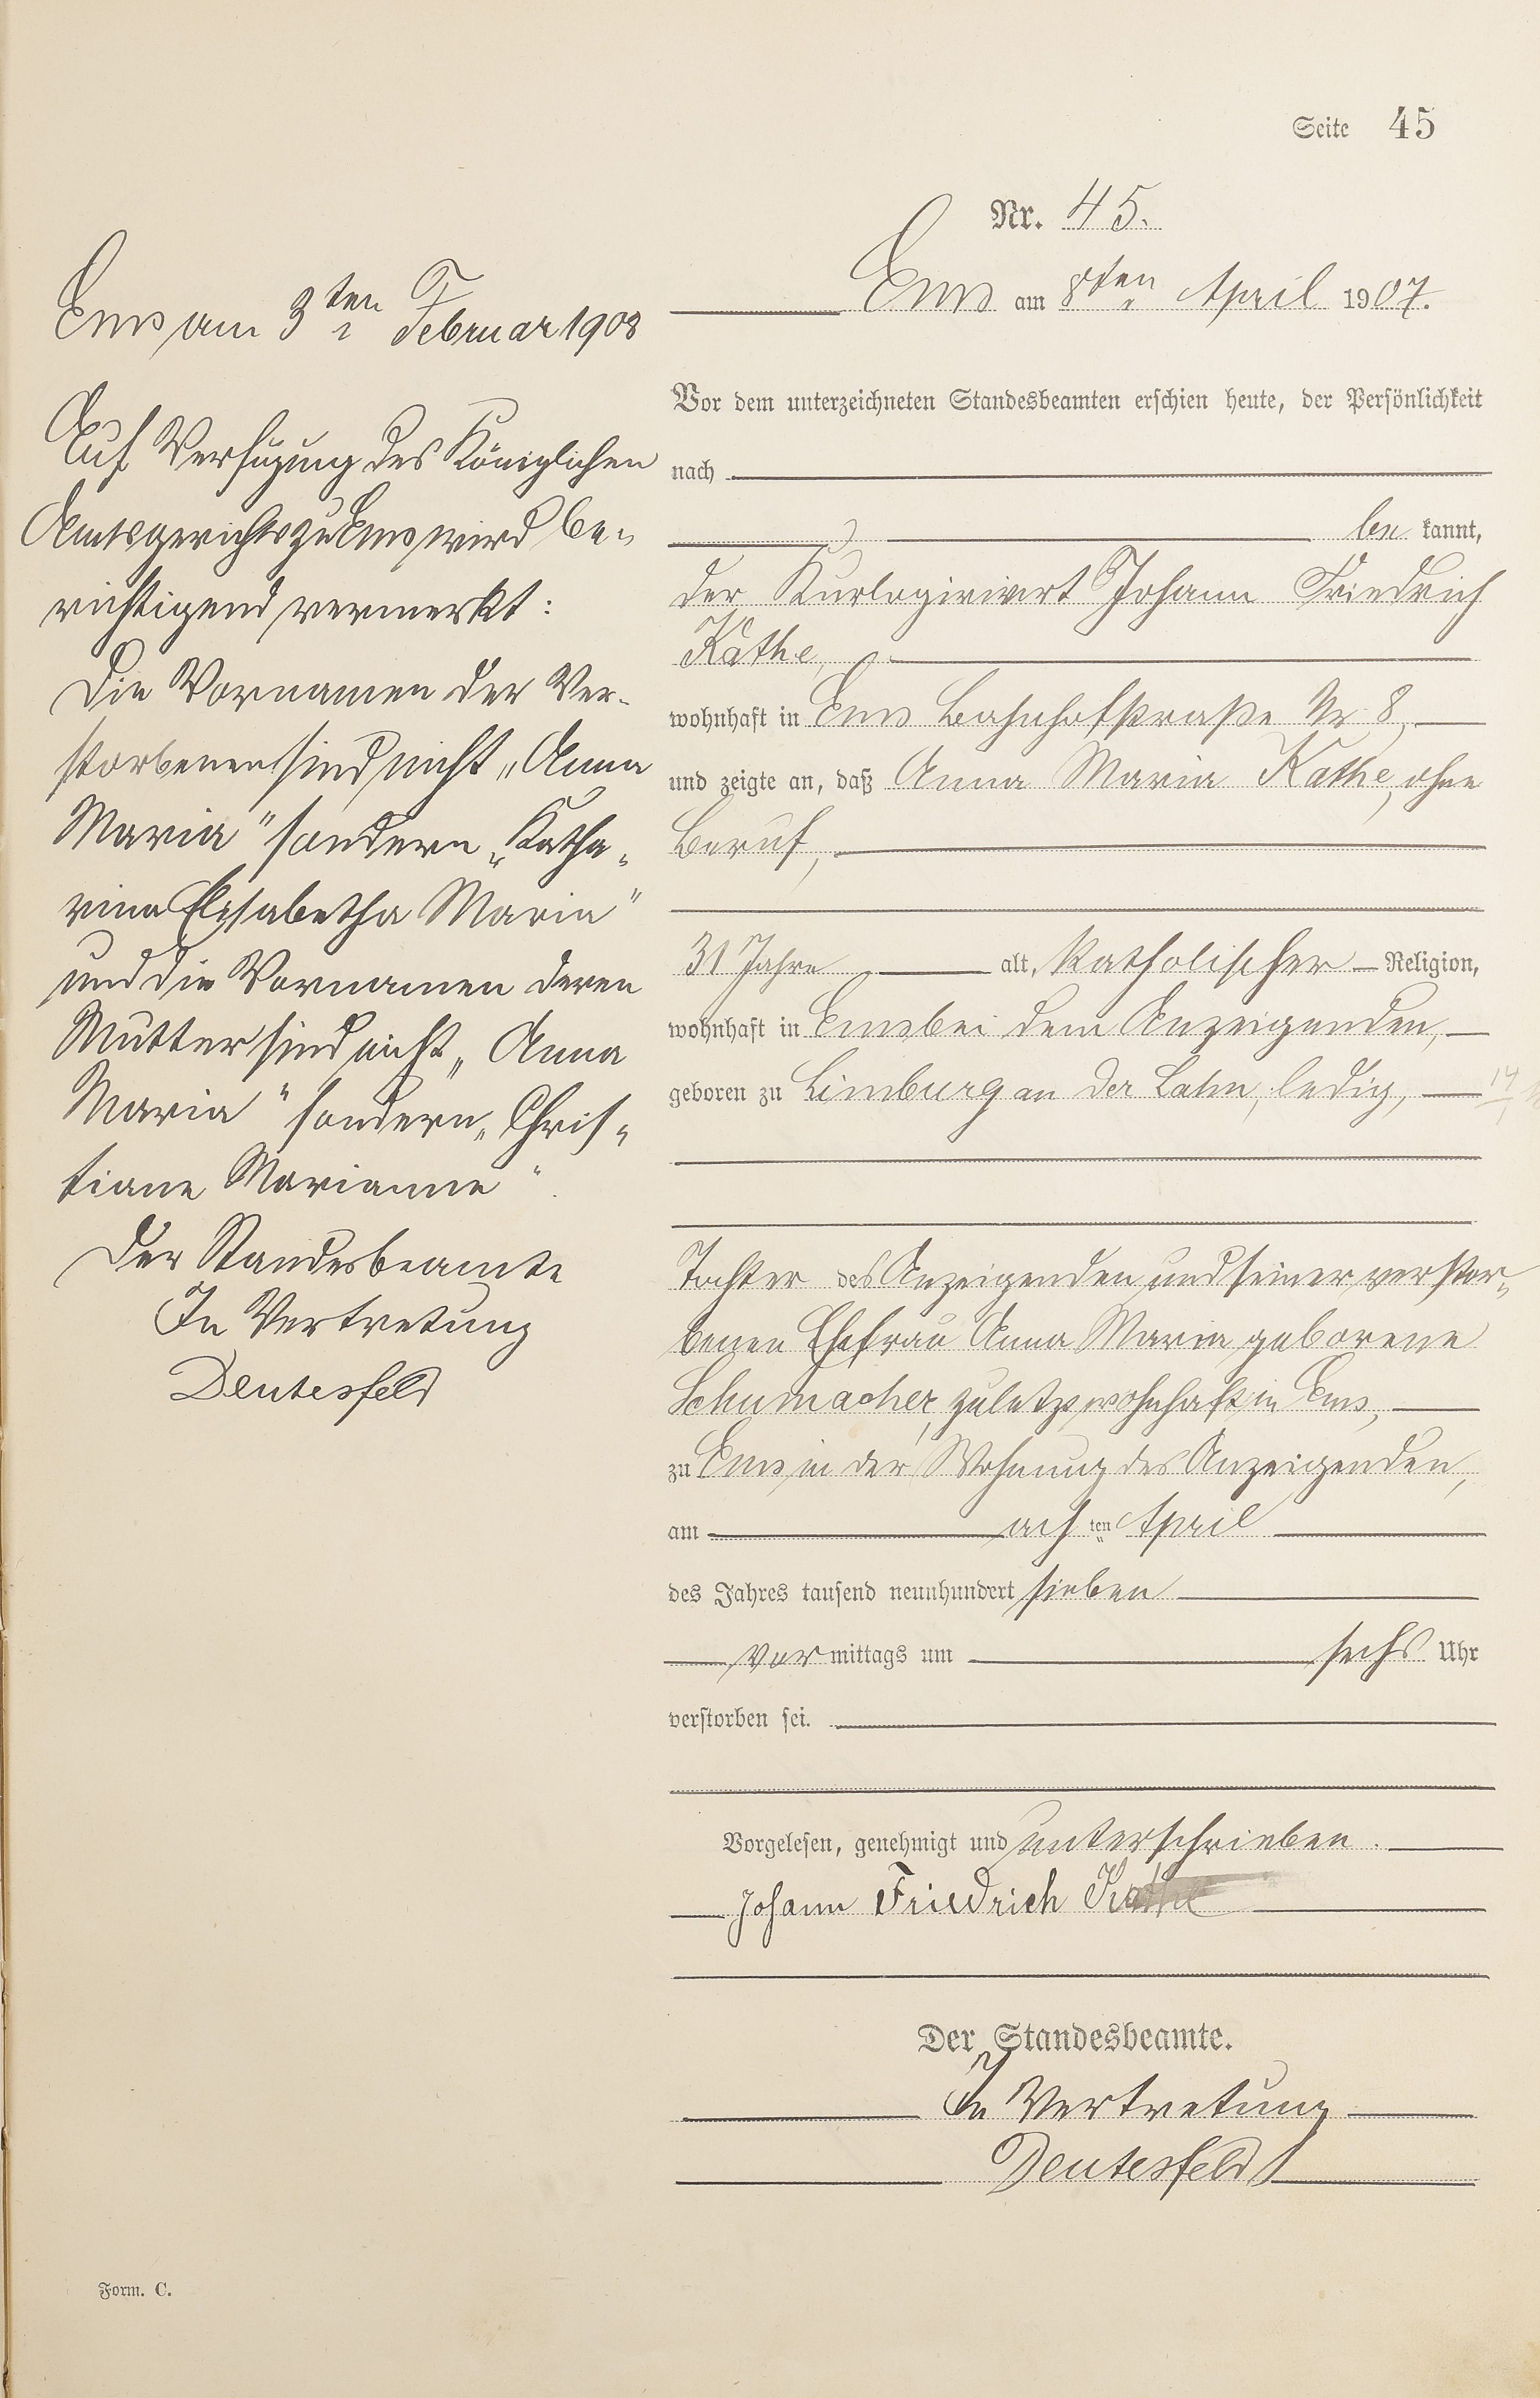 Seite 45
Nr. 45.
Ems am 8ten April 1907.
Vor dem unterzeichneten Standesbeamten erschien heute, der Persönlichkeit
nach
be kannt,
der Kurlogirwirt Johann Friedrich
Käthe,
wohnhaft in Ems Bahnhofstraße Nr. 8,
und zeigte an, daß Anna Maria Käthe, ohne
Beruf,
31 Jahre alt, katholischer Religion,
wohnhaft in Ems bei dem Anzeigenden,
geboren zu Limburg an der Lahn, ledig,
Tochter des Anzeigenden und seiner verstor-
benen Ehefrau Anna Maria geborene
Schumacher, zuletzt wohnhaft in Ems,
zu Ems in der Wohnung des Anzeigenden,
am ach ten April
des Jahres tausend neunhundert sieben
vor mittags um sechs Uhr
verstorben sei.
Vorgelesen, genehmigt und unterschrieben.
Johann Friedrich Käthe
Der Standesbeamte.
In Vertretung
Deutesfeld
Ems am 3ten Februar 1908
Auf Verfügung des Königlichen
Amtsgerichts zu Ems wird be-
richtigend vermerkt:
Die Vornamen der Ver-
storbenen sind nicht „Anna
Maria" sondern „Katha-
rina Elisabetha Maria"
und die Vornamen deren
Mutter sind nicht „Anna
Maria" sondern „Chris-
tiane Marianne".
Der Standesbeamte
In Vertretung
Deutesfeld
Form. C.